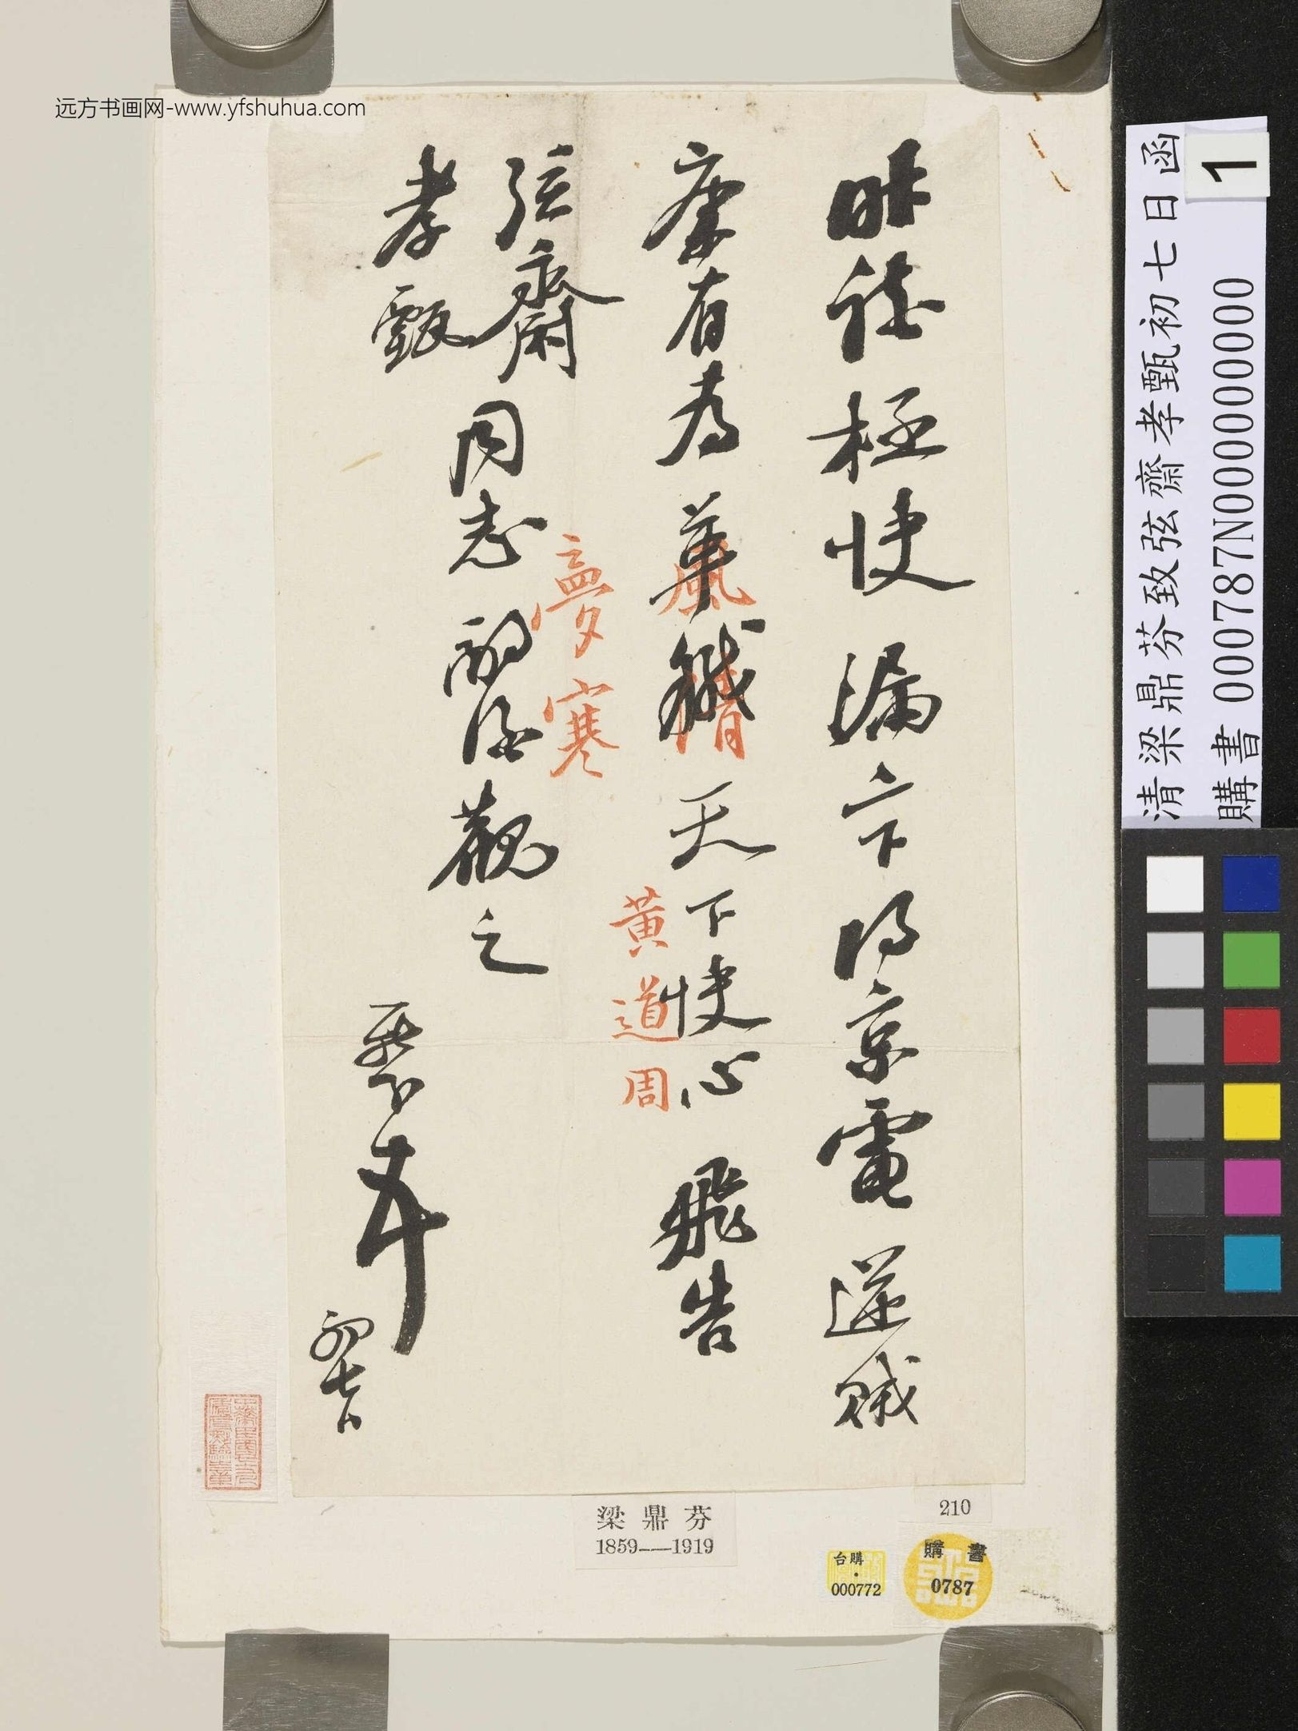 远方书画网-www.yfshuhua.com
昨談極快漏下得京電逆賊
康有為革職天下快心飛告
弦齋同志
孝甄
觀之
初七日
風情
夢寒
黃道周
清梁鼎芬致弦齋孝甄初七日函
購書 000787N000000000
1
梁鼎芬
1859—1919
210
台購
000772
購書
0787